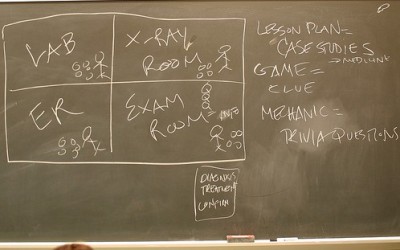 LAB
X-RAY
ROOM
ER
EXAM
ROOM
LESSON PLAN=
CASE STUDIES
→ MEDICINE
GAME=
CLUE
MECHANIC=
TRIVIA QUESTIONS
DIAGNOSIS
TREATMENT